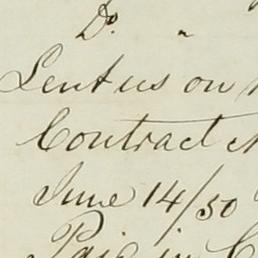 Do. "
Lent us on
Contract
June 14/50
Paid in